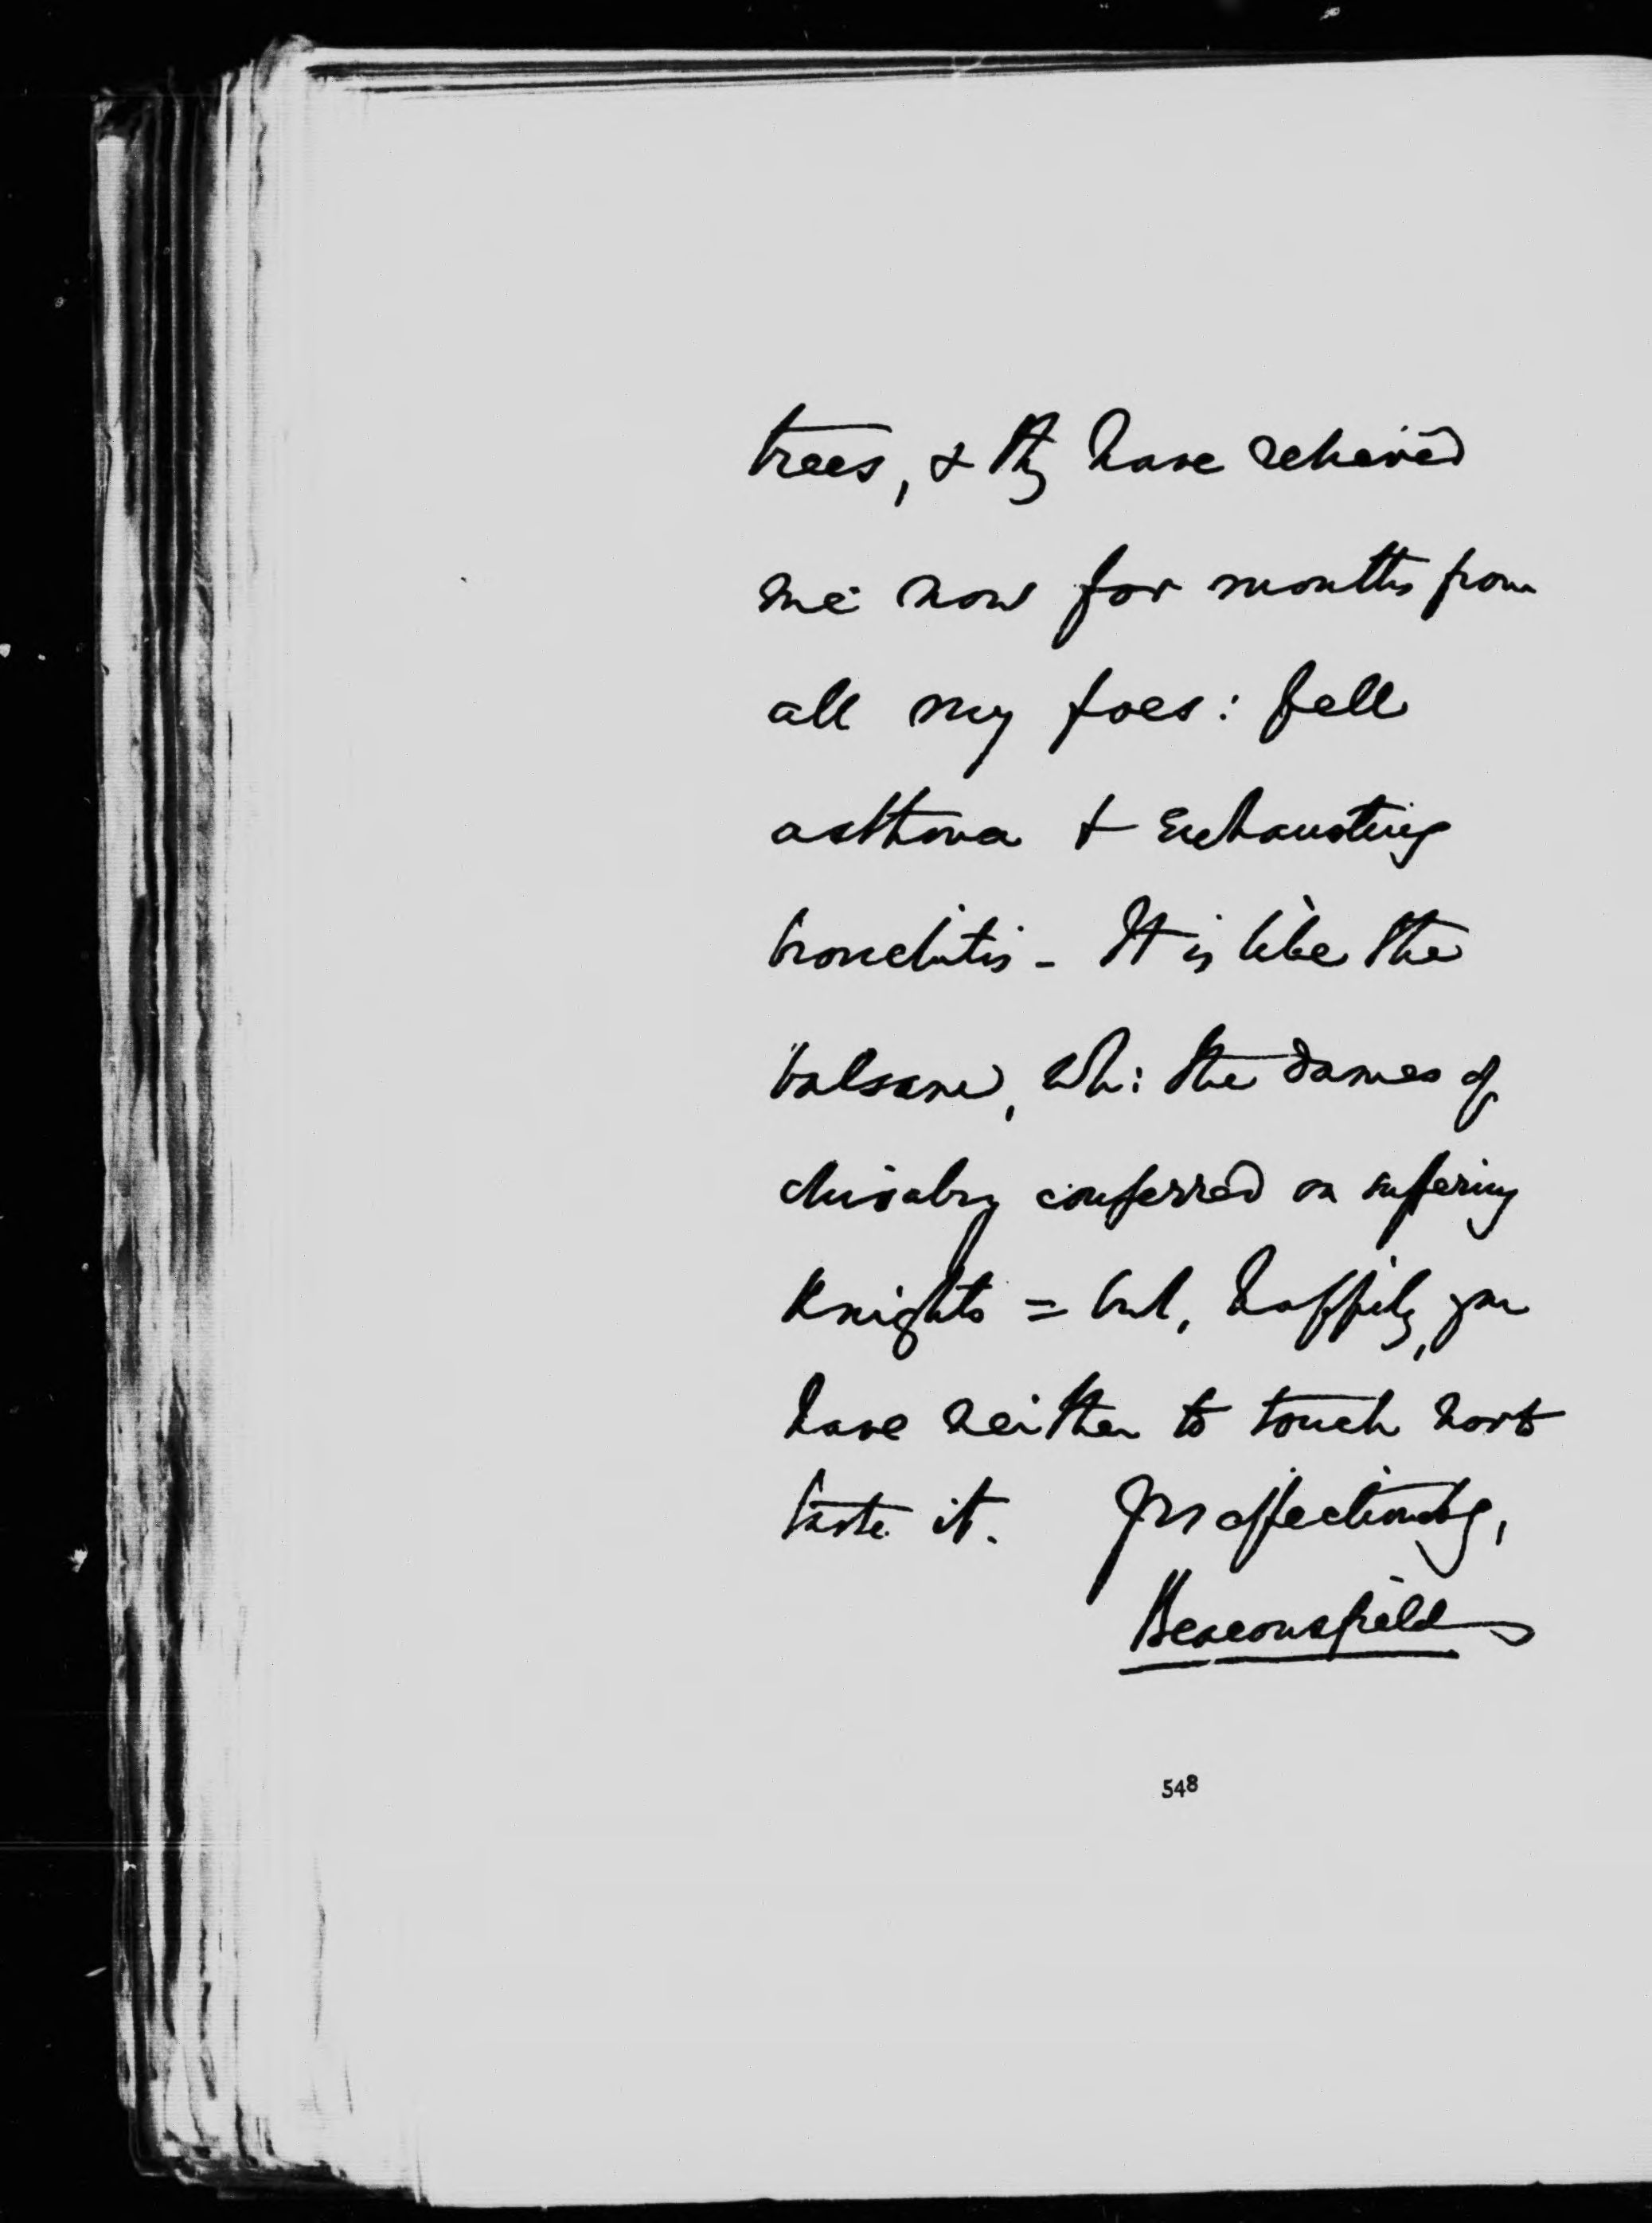 trees, & thy have relieved
me now for months from
all my foes: fell
asthma & exhausting
bronchitis - It is like the
balsam, wh: the dames of
chivalry conferred on suffering
Knights = but, happily, you
have neither to touch nor to
taste it. Yrs affectionately,
Beaconsfield
548